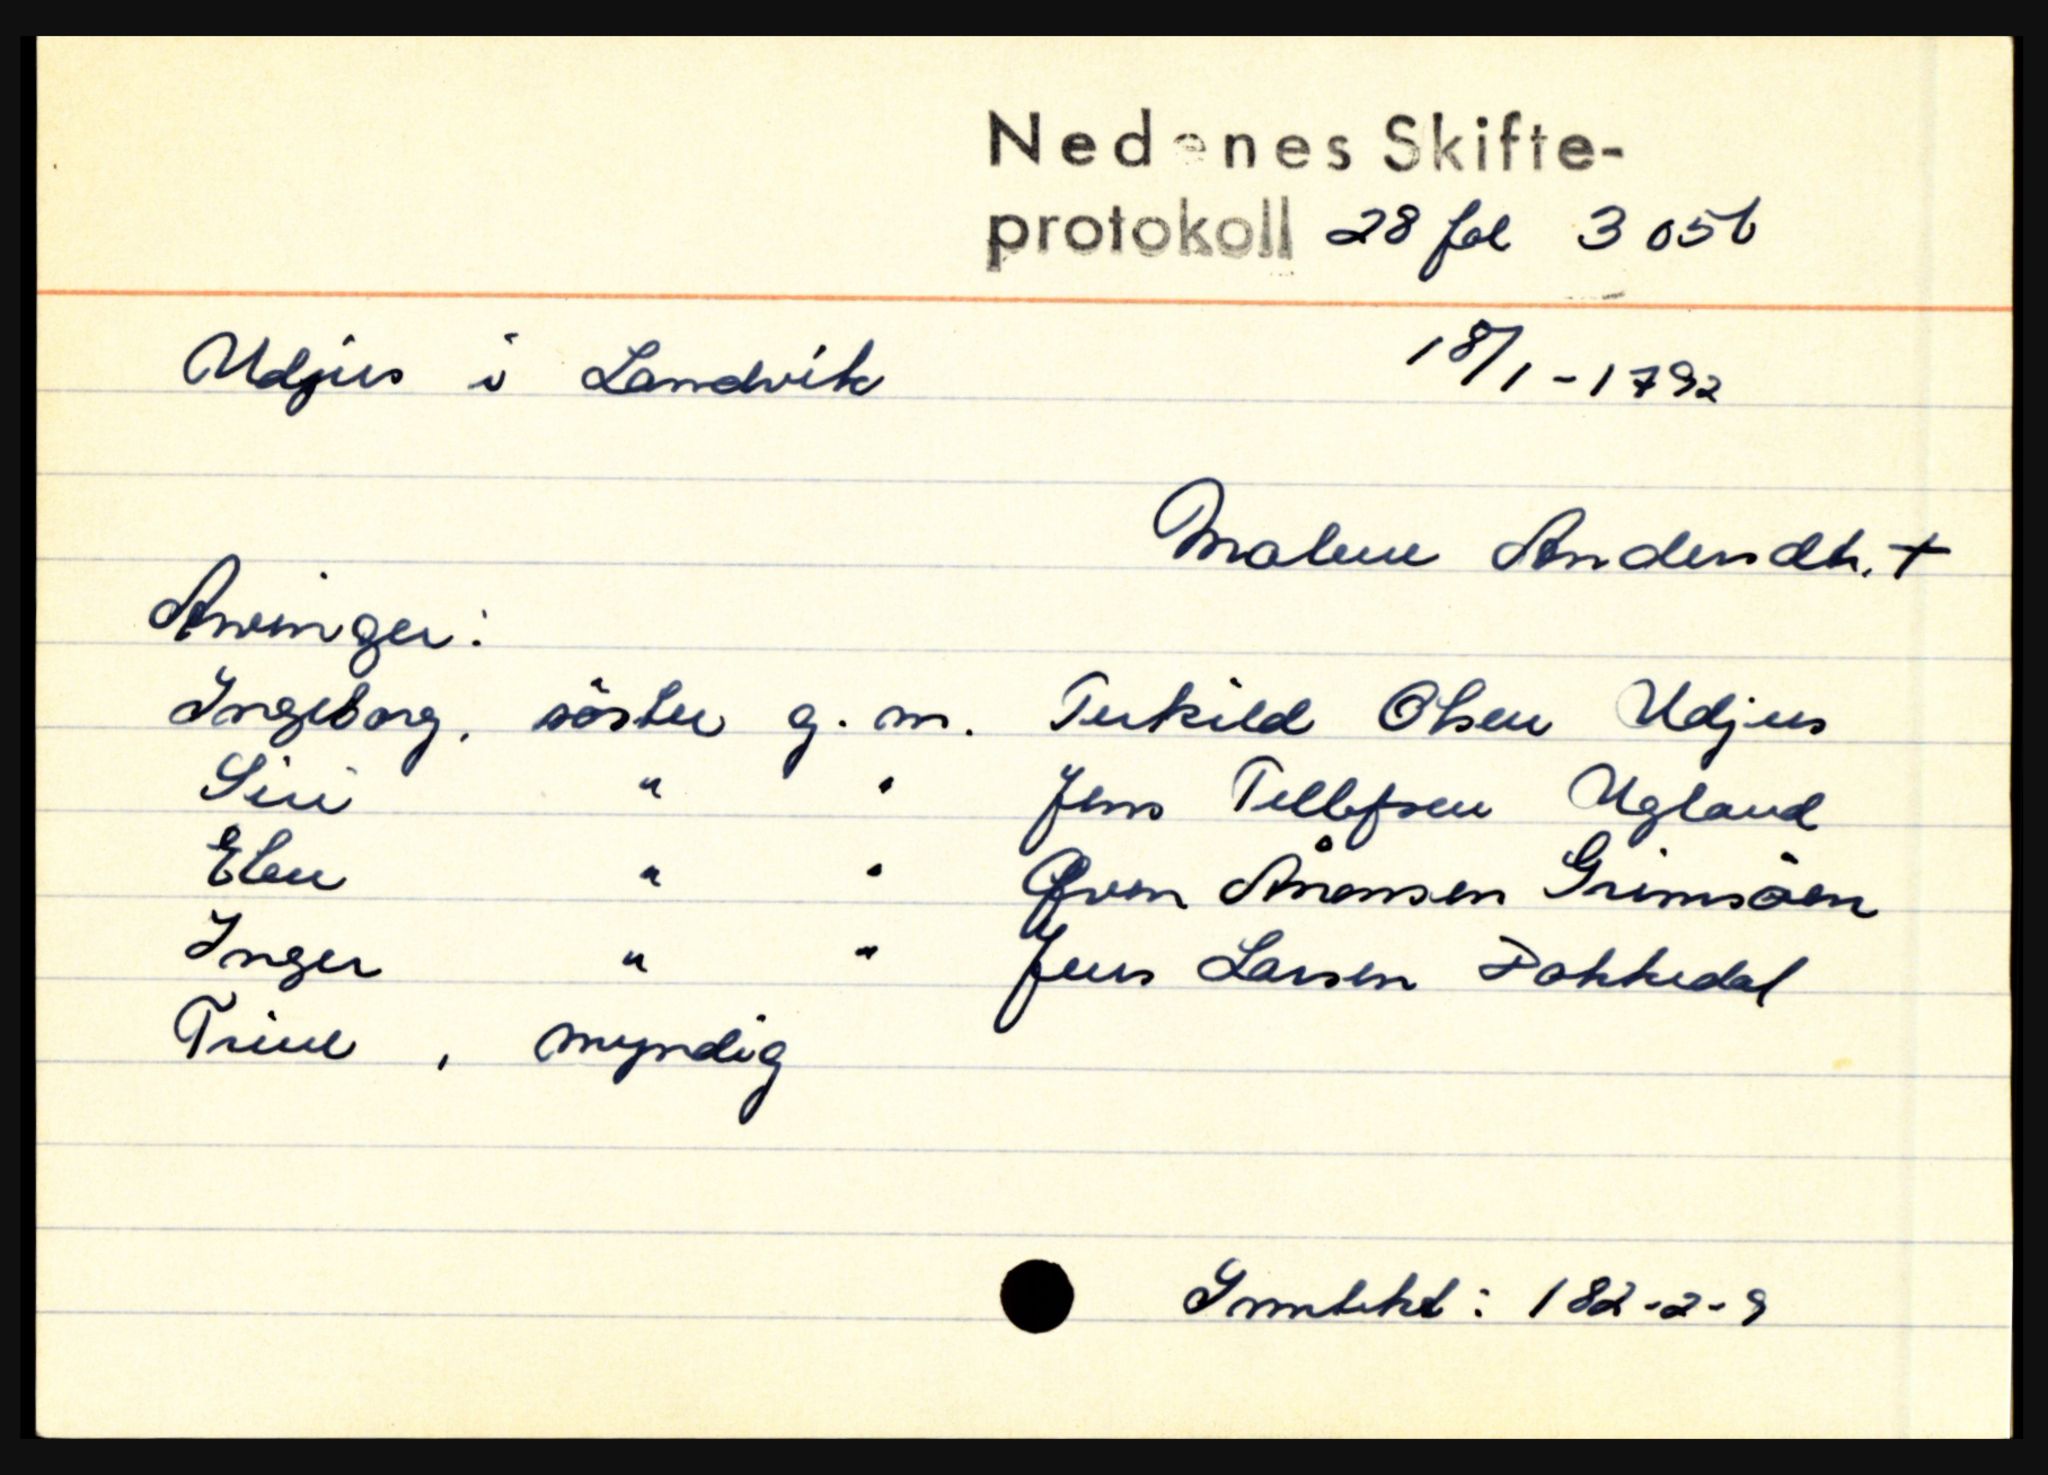 Nedenes Skifte-
protokoll 28 fol 305b
Udjus i Landvik 18/1-1792
Malene Andersdtr. +
Arvinger:
Ingeborg, söster g. m. Terkild Olsen Udjus
Siri " " Jens Tellefsen Ugland
Elen " " Gjven Ånonsen Grimsöen
Inger " " Jens Larsen Dokkedal
Trine , myndig
Inntekt: 182-2-9